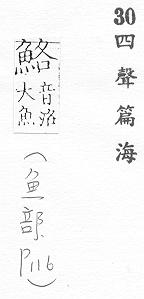 30四聲篇海
鮥
音洛
大魚
(魚部P116)